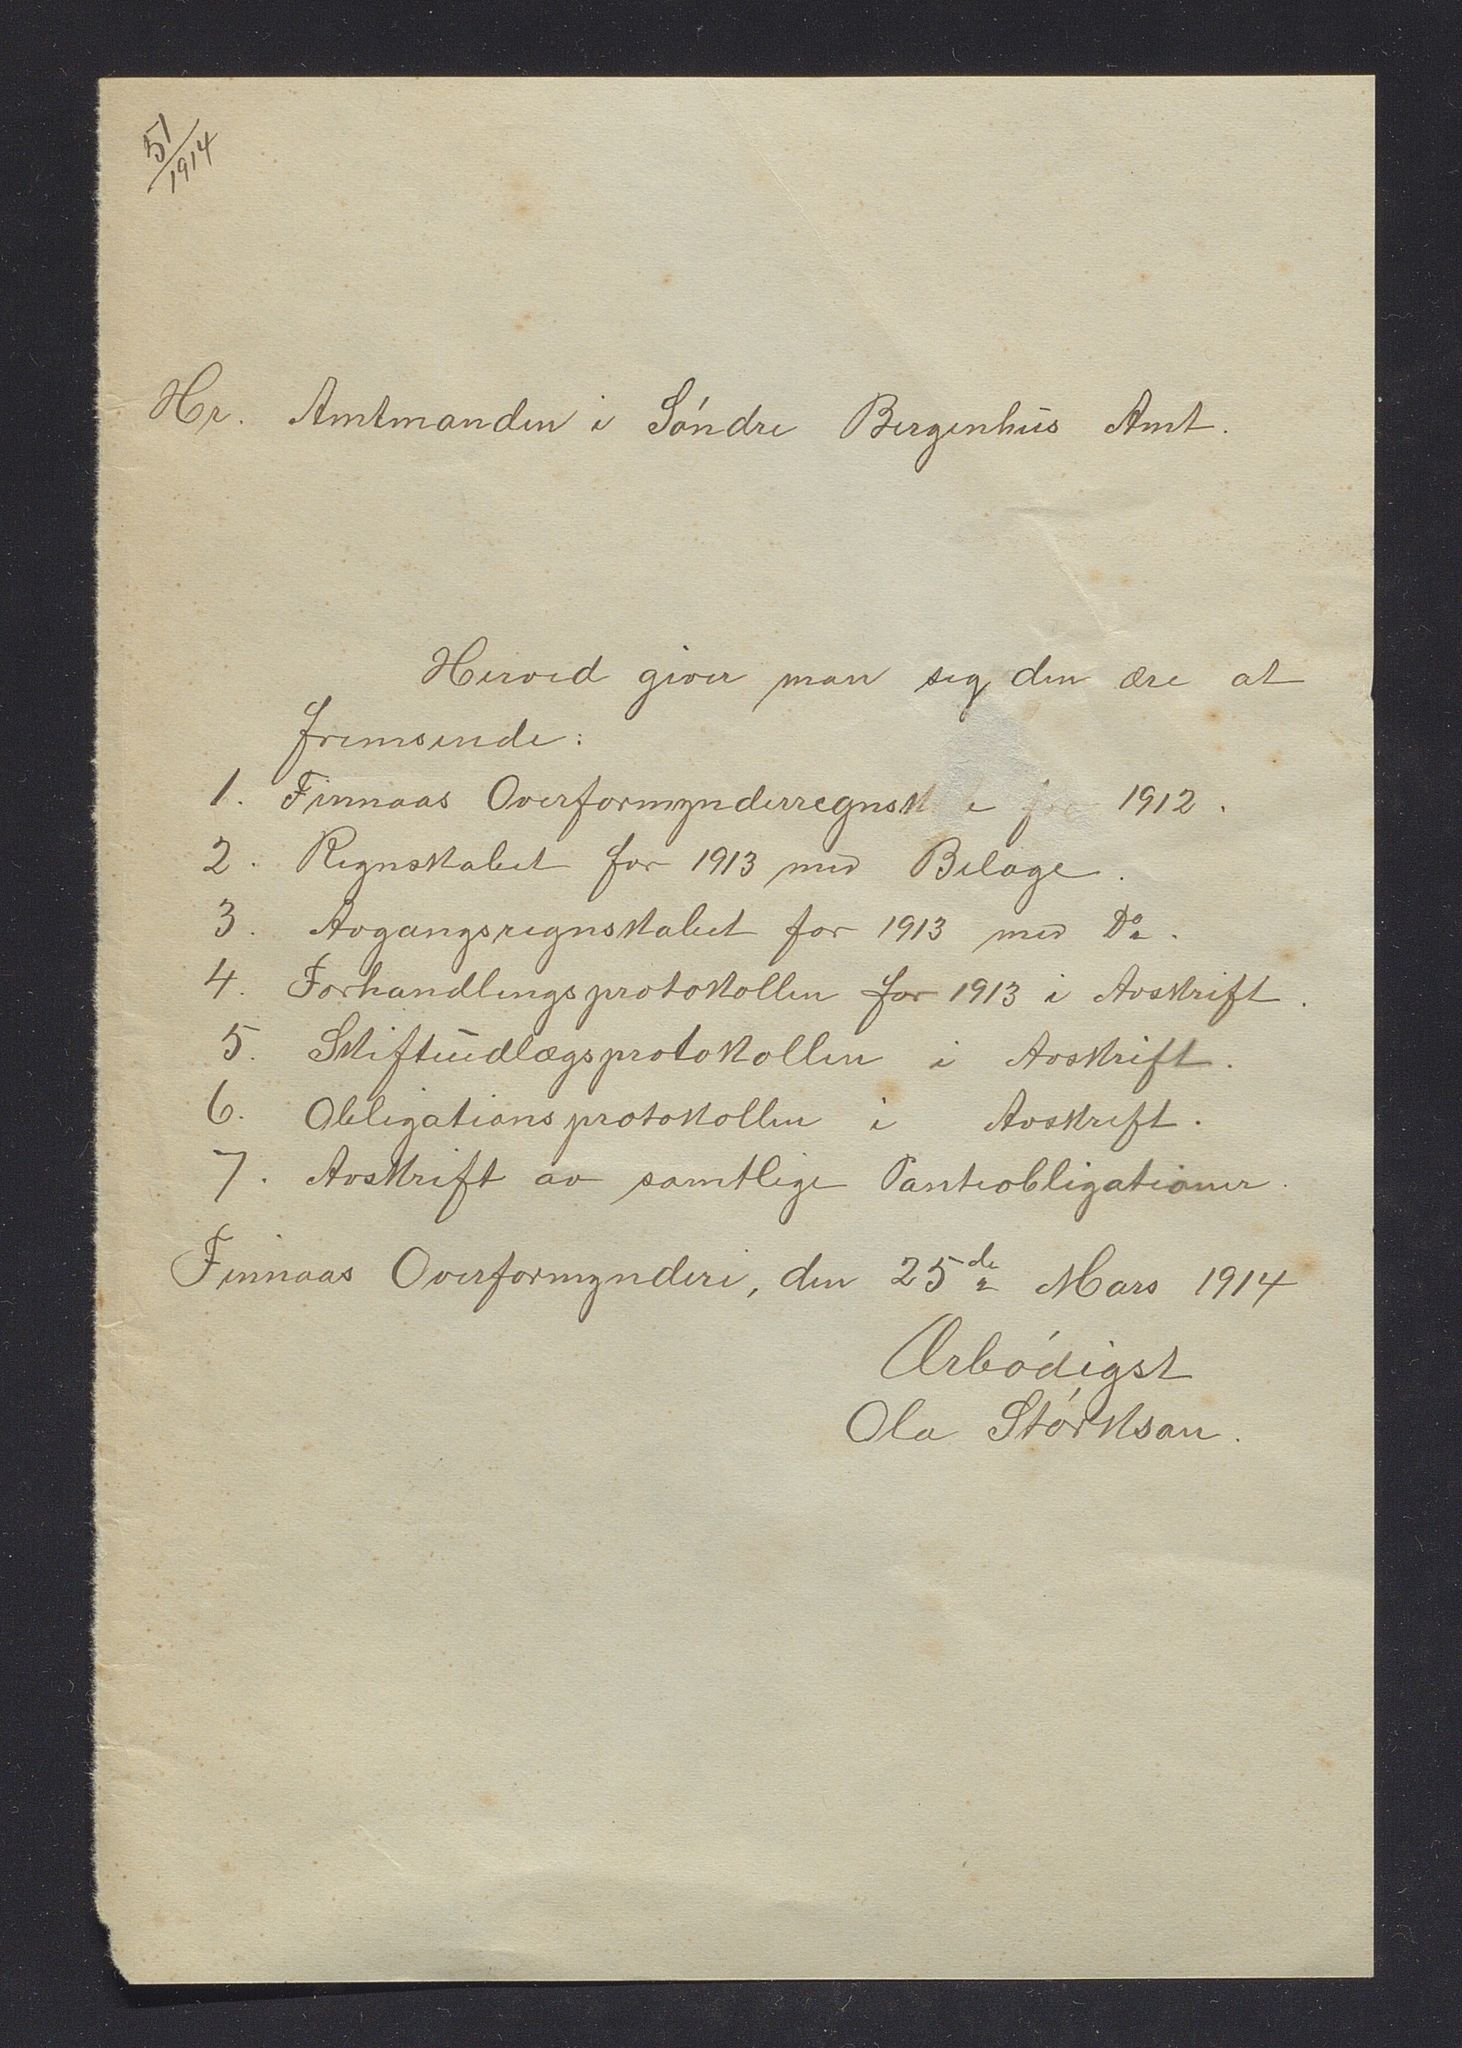 51/1914
Hr. Amtmanden i Søndre Bergenhus Amt.
Herved giver man sig den ære at
fremsende:
1. Finnaas Overformynderregnsk e for 1912.
2. Regnskabet for 1913 med Bilage.
3. Avgangsregnskabet for 1913 med Do.
4. Forhandlingsprotokollen for 1913 i Avskrift.
5. Skifteudlægsprotokollen i Avskrift.
6. Obligationsprotokollen i Avskrift.
7. Avskrift av samtlige Panteobligationer.
Finnaas Overformynderi, den 25de Mars 1914
Ærbødigst
Ola Størksen.